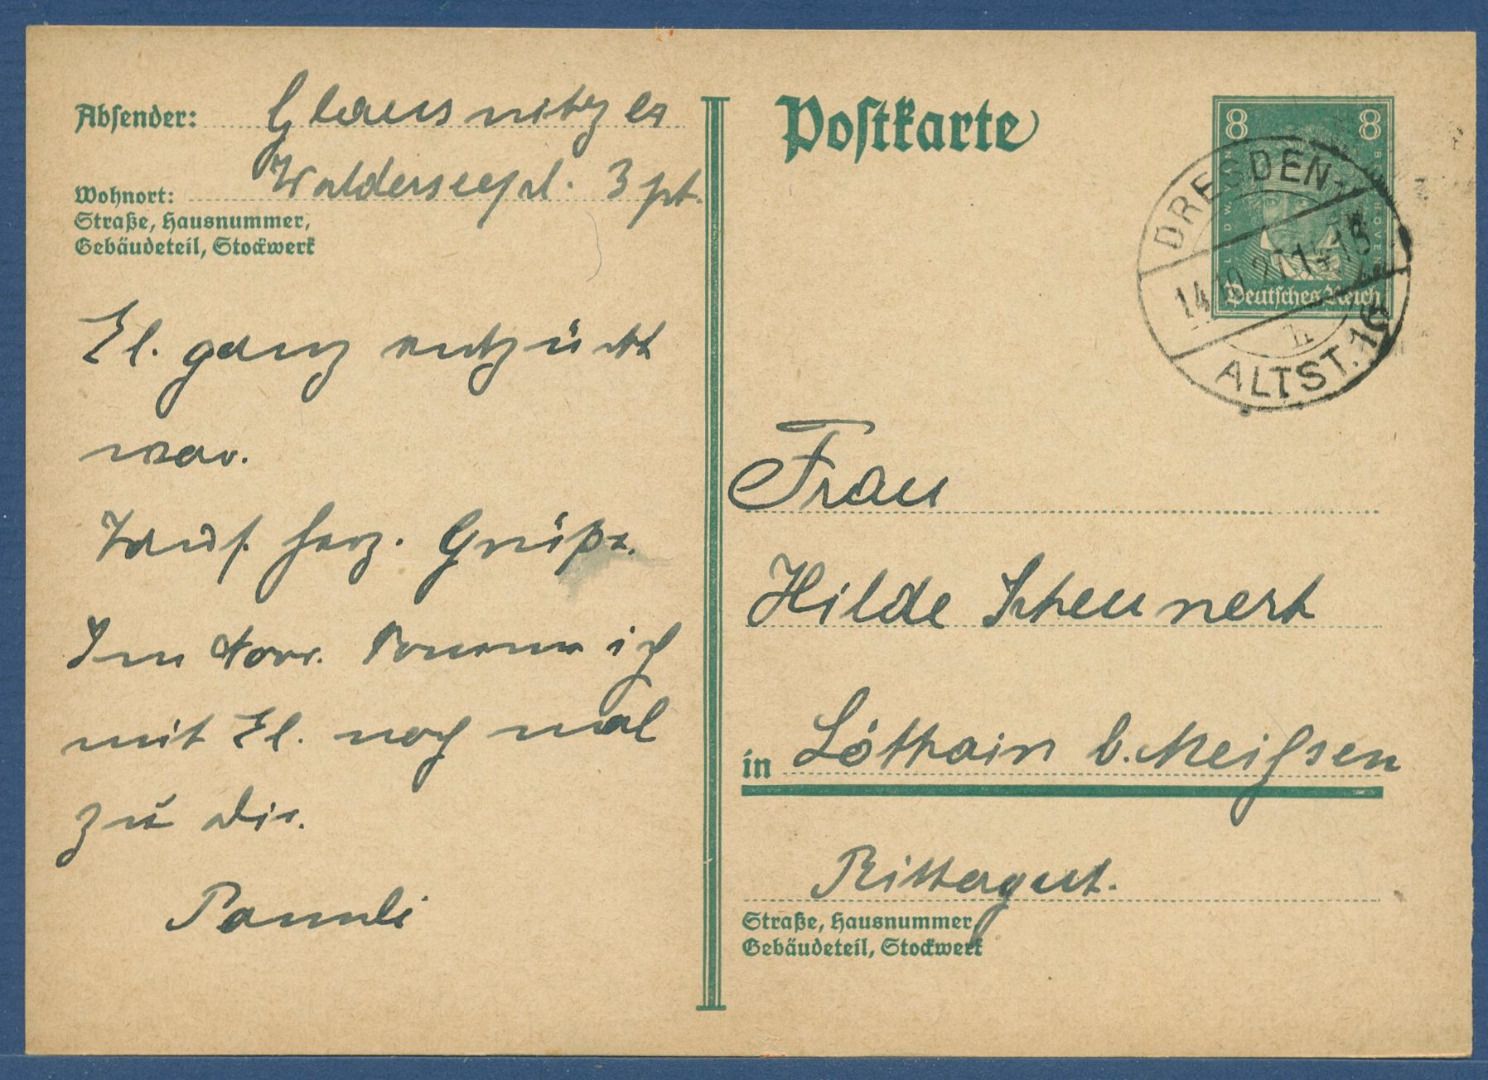 Absender: Glausnitzer
Wohnort: Walderseepl. 3 pt.
Straße, Hausnummer,
Gebäudeteil, Stockwerk
El. ganz entzückt
war.
Taus. herz. Grüße.
Im Nov. komme ich
mit El. noch mal
zu Dir.
Postkarte
8 8
Deutsches Reich
DRESDEN-
14.10.27 14-15
h
ALTST. 16
Frau
Hilde Scheunert
in Löthain b. Meißsen
Rittergut.
Straße, Hausnummer,
Gebäudeteil, Stockwerk